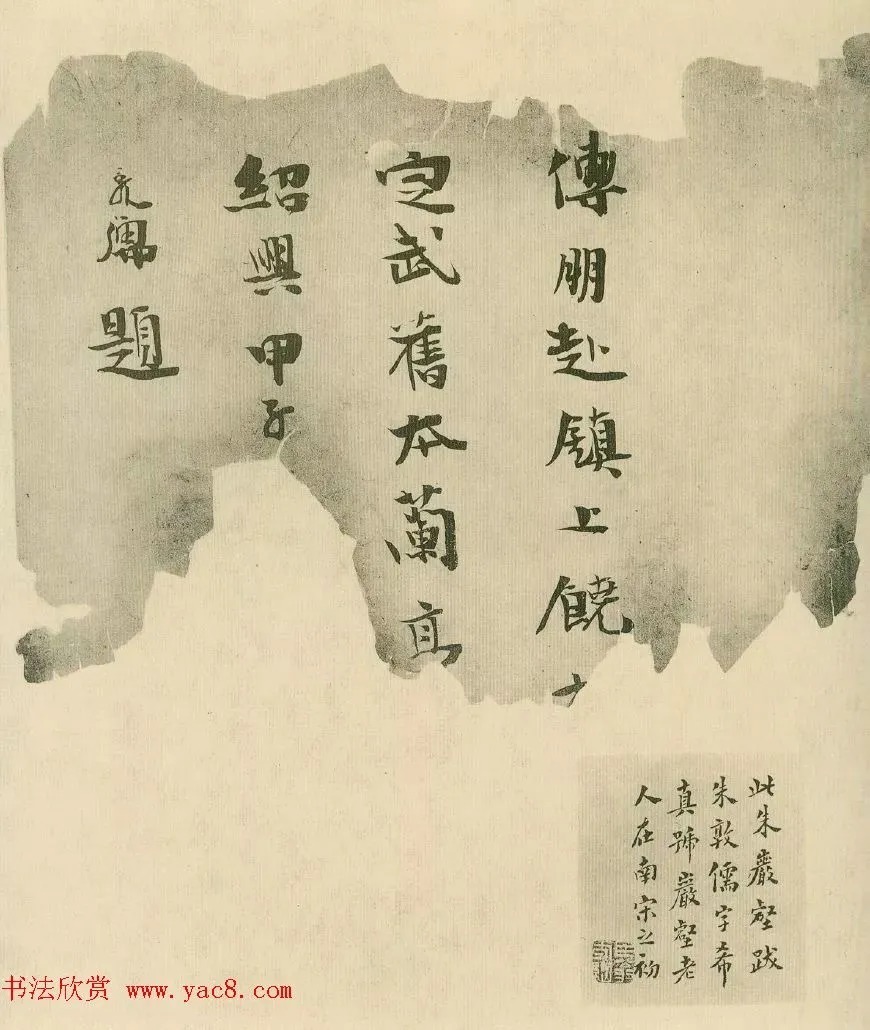 傅朋赴鎮上饒
定武舊本蘭
紹興甲子
敦儒題
此朱巖壑跋
朱敦儒字希
真號巖壑老
人在南宋之初
书法欣赏 www.yac8.com